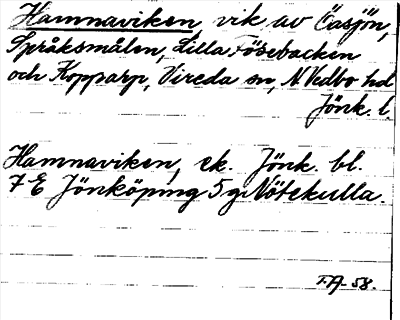 Hamnaviken vik av Öasjön,
Språksmålen, Lilla Fösebacken
och Kopparp, Vireda sn, N Vedbo hd
Jönk. l.
Hamnaviken, ek. Jönk. bl.
7 E Jönköping 5 g Nötekulla.
F.A-58.